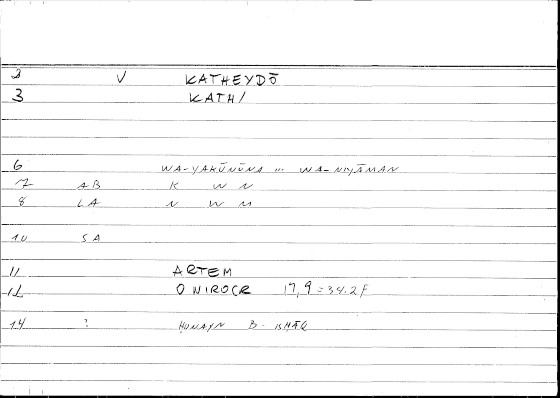 2 V KATHEYDŌ
3 KATH/
6 WA-YAKŪNŪNA ... WA-NIYĀMAN
7 AB K W N
8 LA N W M
10 SA
11 ARTEM
12 ONIROCR 17,9 = 34.2F
14 ? ḤUNAYN B. ISḤĀQ